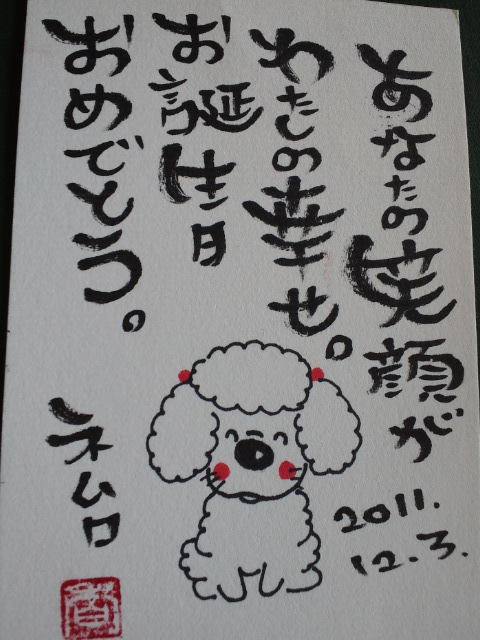 あなたの笑顔が
わたしの幸せ。
お誕生日
おめでとう。
ネムロ
2011.
12.3.